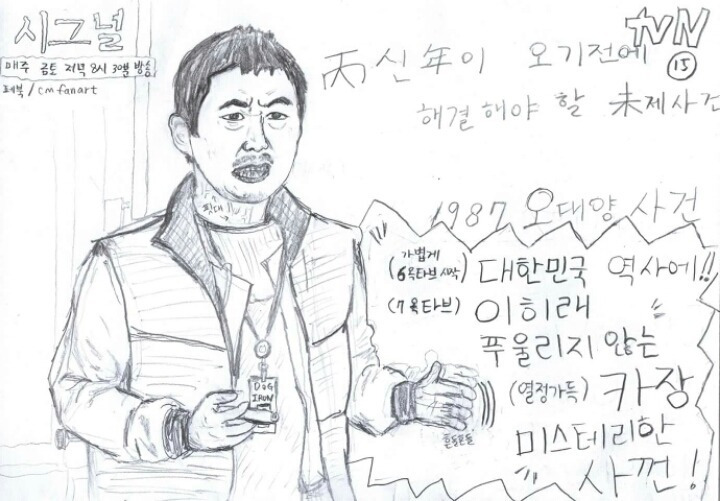 시그널
매주 금토 저녁 8시 30분 방송
페북 / cmfanart
tvN
15
丙신年이 오기전에
해결해야 할 未제사건
1987 오대양 사건
핏대
(가볍게 6옥타브 시작) 대한민국 역사에!!
(7옥타브) 이히래
푸울리지 않는
(열정가득) 카장
미스테리한
사껀!
DoG
IRUN
흔들흔들